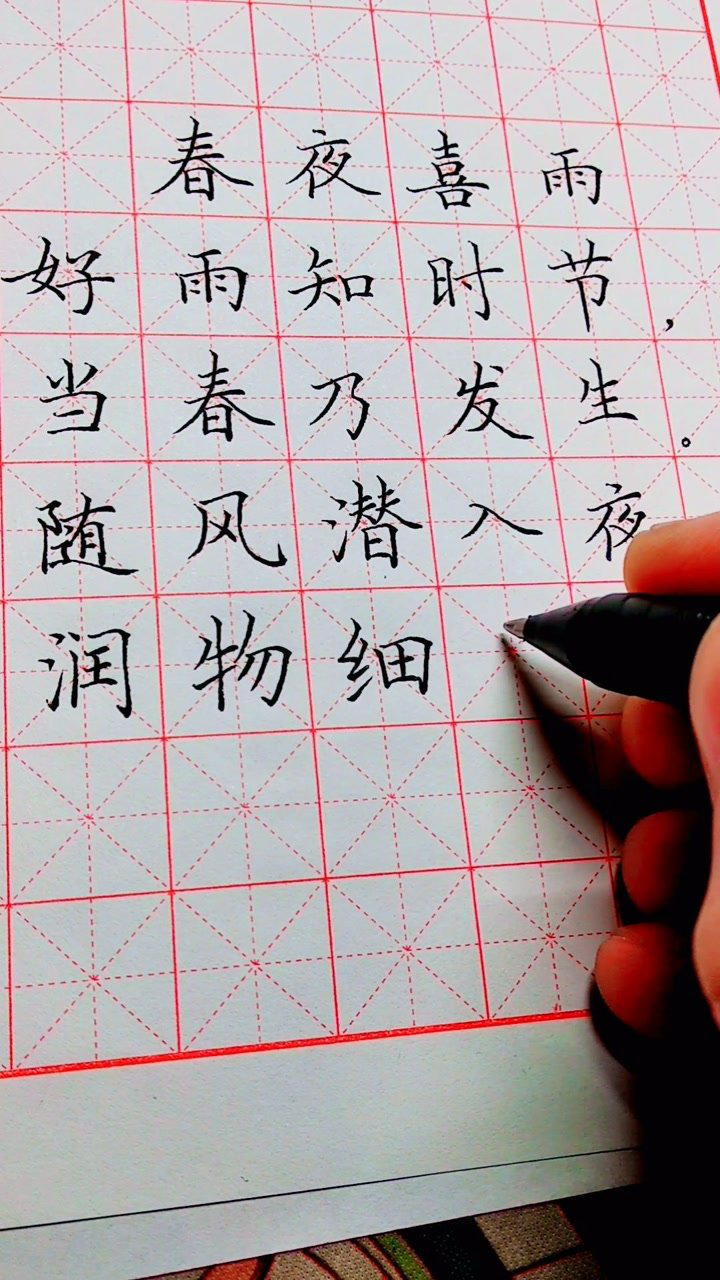 春夜喜雨
好雨知时节，
当春乃发生。
随风潜入夜
润物细